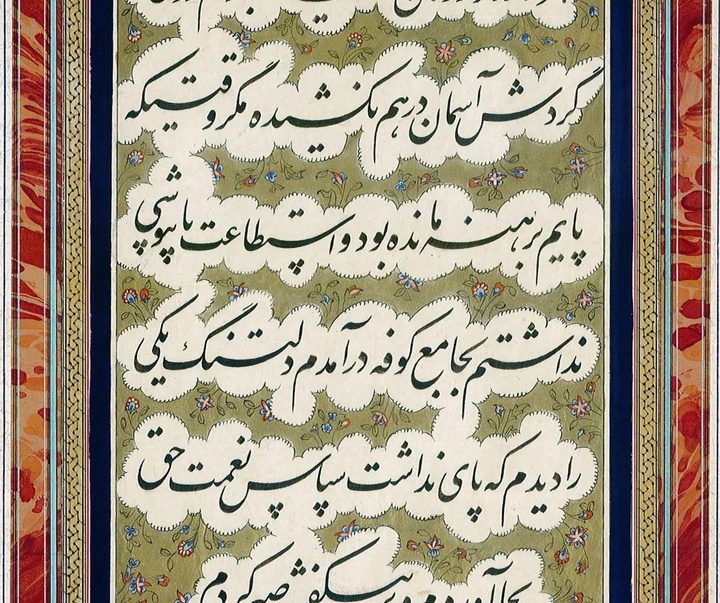 گردش آسمان درهم نکشیده مگر وقتیکه
پایم برهنه مانده بود و استطاعت پاپوشی
نداشتم بجامع کوفه درآمدم دلتنگ یکی
را دیدم که پای نداشت سپاس نعمت حق
بجا آوردم و بر بیکفشی صبر کردم